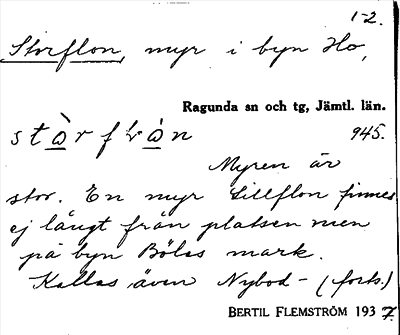 1-2.
Storflon, myr i byn Ho,
Ragunda sn och tg, Jämtl. län.
945.
Myren är
stor. En myr Lillflon finnes
ej långt från platsen men
på byn Bölas mark.
Kallas även Nybod- (forts.)
BERTIL FLEMSTRÖM 1937.